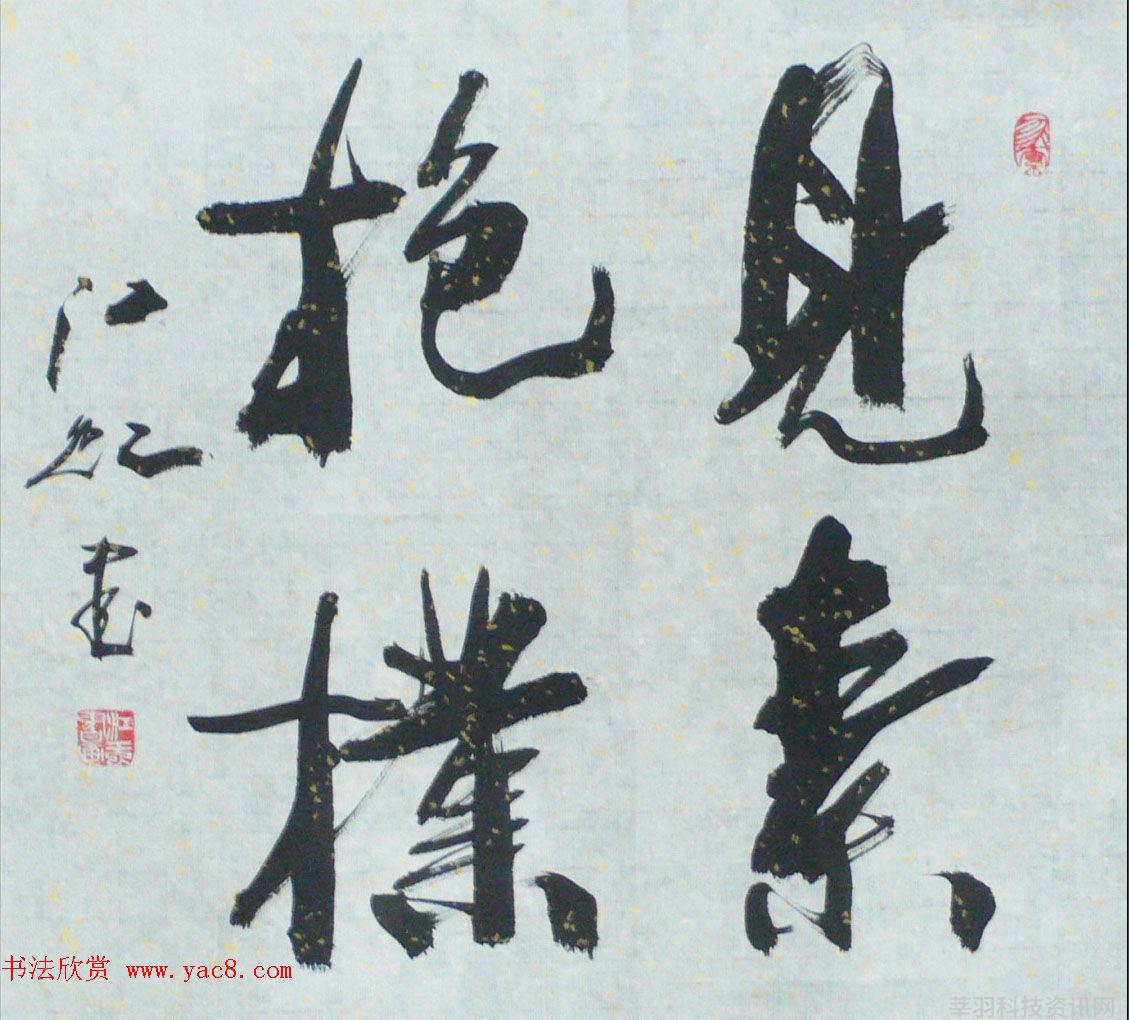 見素
抱樸
江虹書
书法欣赏 www.yac8.com
莘羽科技资讯网